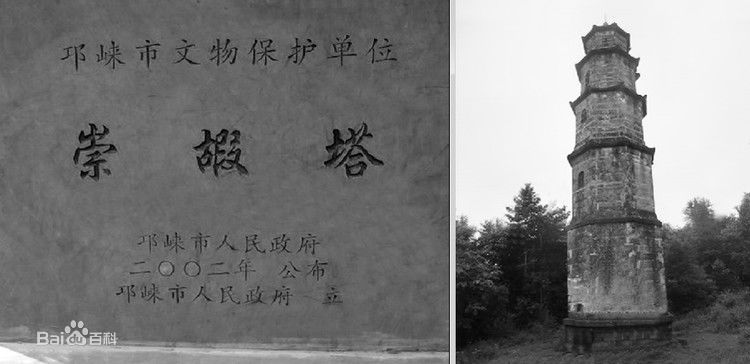 邛崃市文物保护单位
崇嘏塔
邛崃市人民政府
二〇〇二年 公布
邛崃市人民政府 立
Bai du 百科